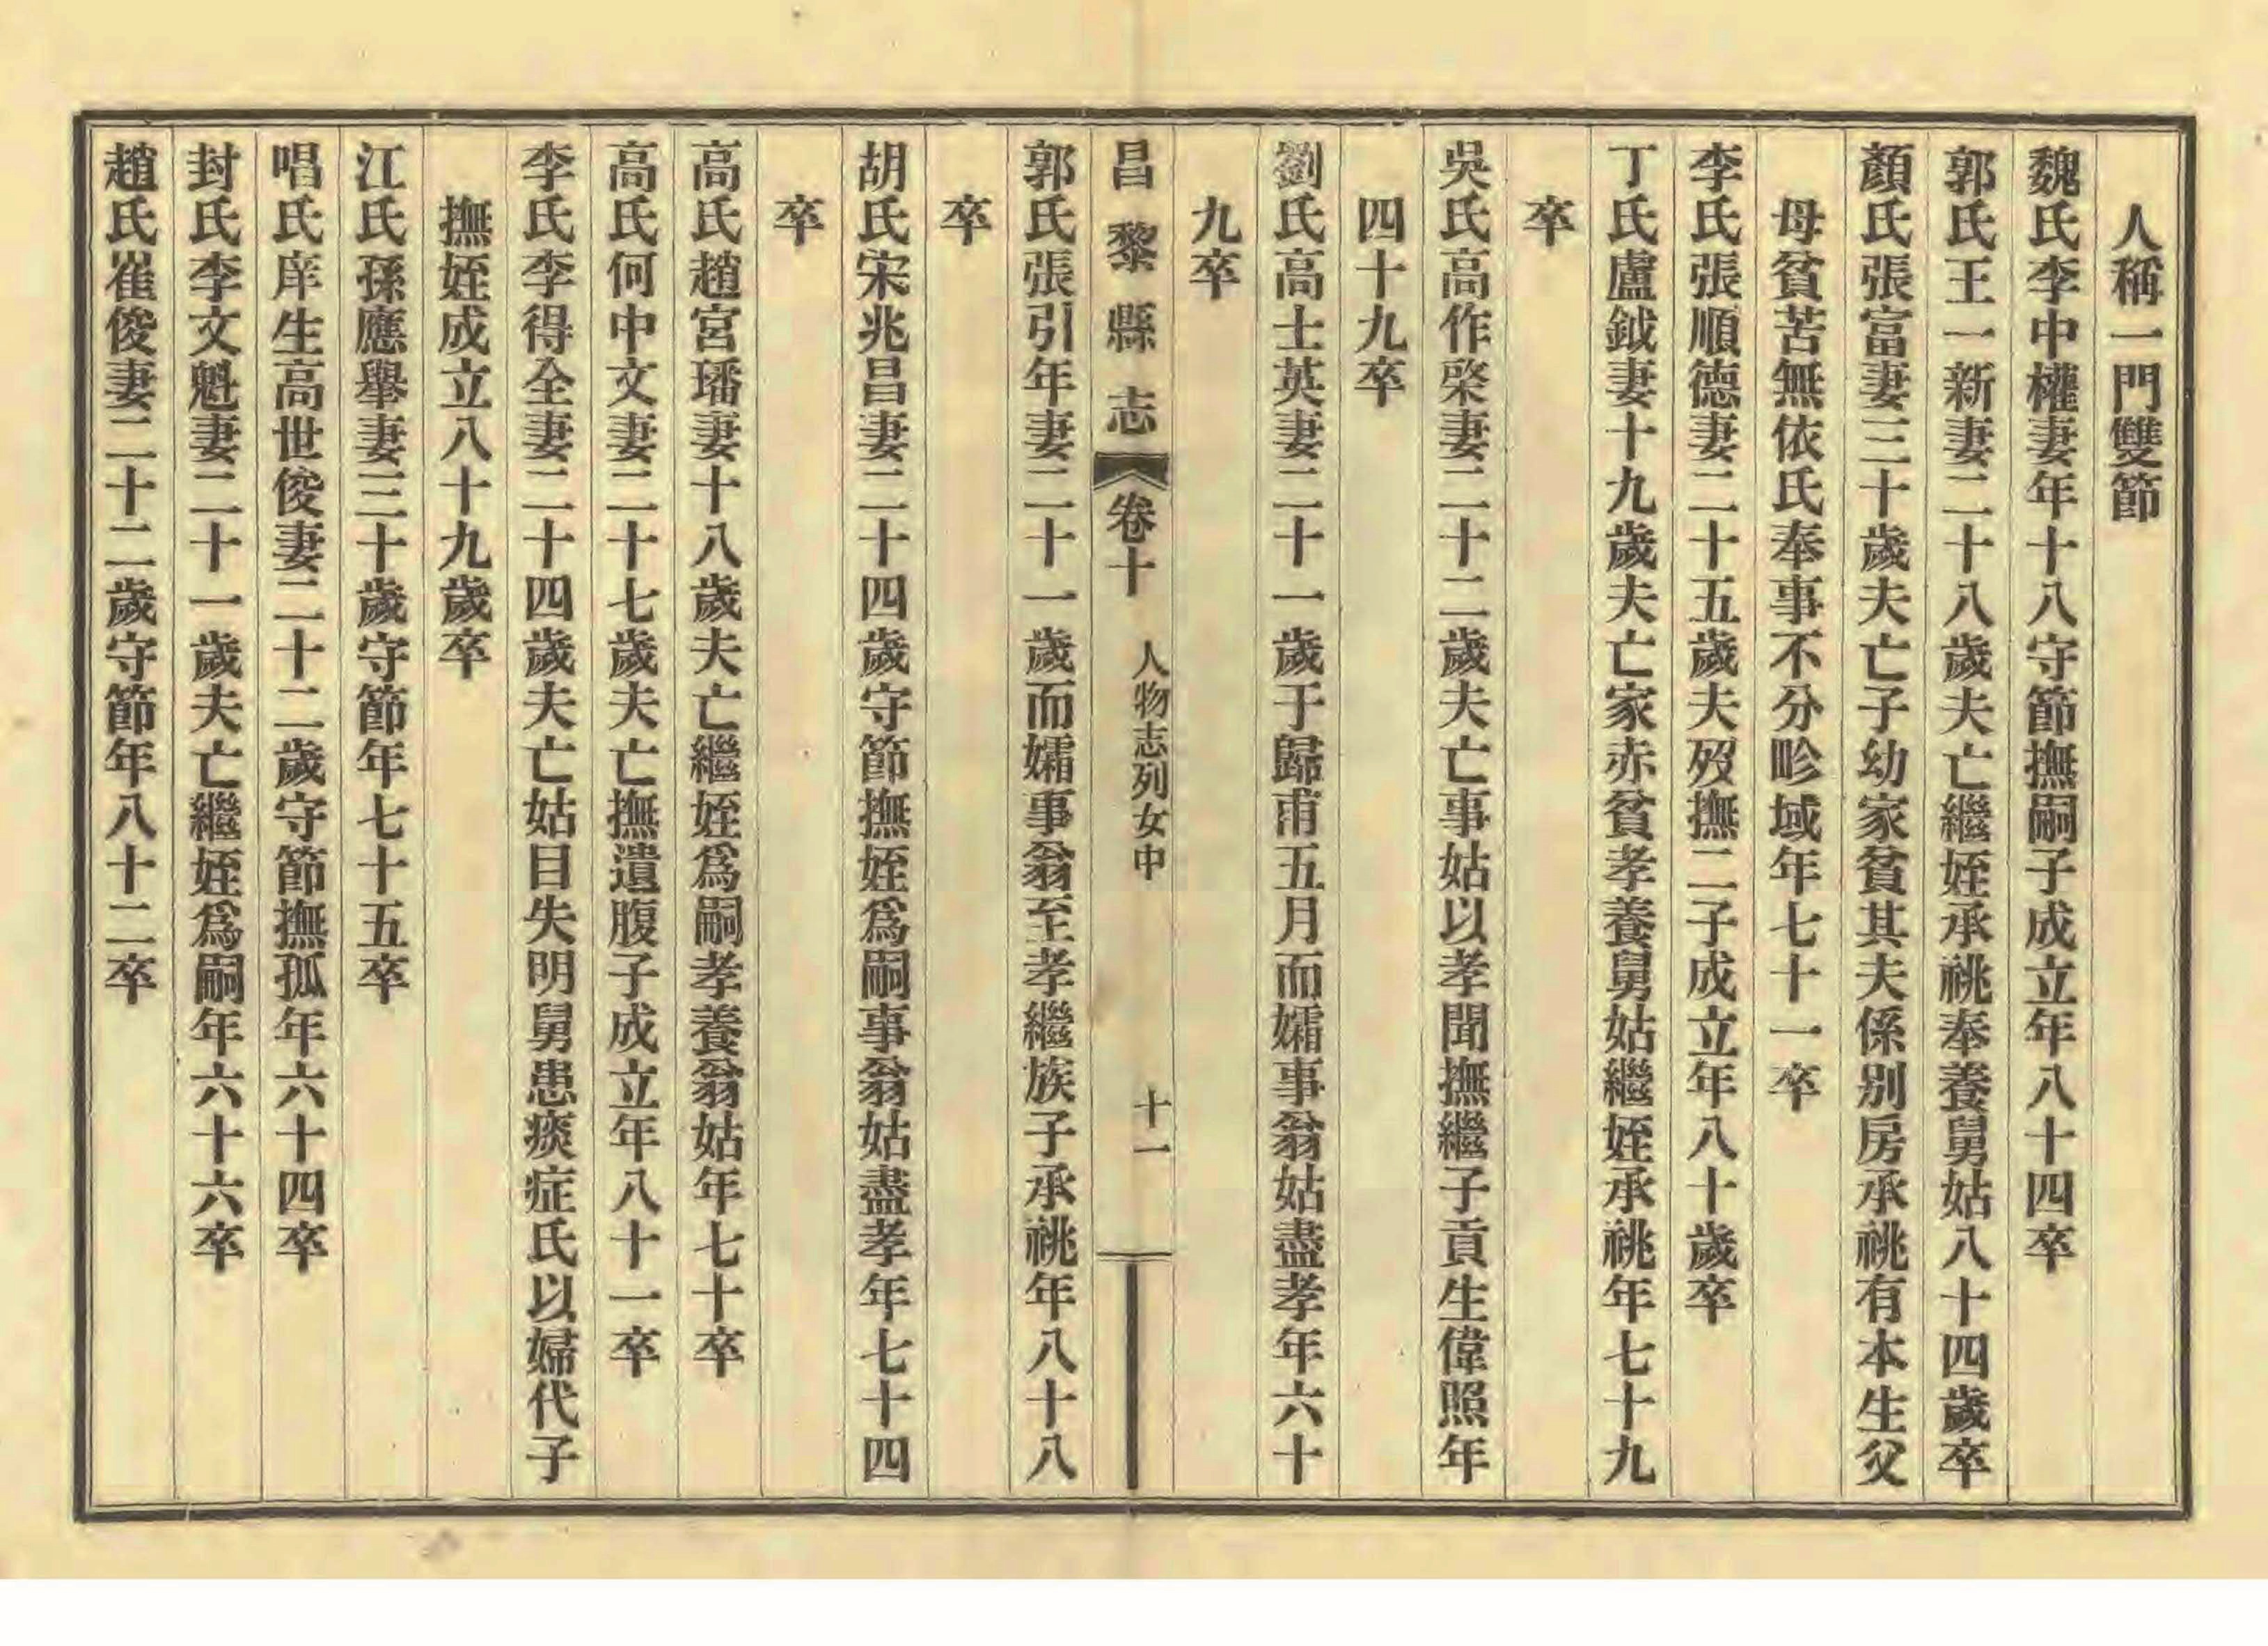 人稱一門雙節
魏氏李中權妻年十八守節撫嗣子成立年八十四卒
郭氏王一新妻二十八歲夫亡繼姪承祧奉養舅姑八十四歲卒
顏氏張富妻三十歲夫亡子幼家貧其夫係別房承祧有本生父
母貧苦無依氏奉事不分畛域年七十一卒
李氏張順德妻二十五歲夫歿撫二子成立年八十歲卒
丁氏盧鉞妻十九歲夫亡家赤貧孝養舅姑繼姪承祧年七十九
卒
吳氏高作棨妻二十二歲夫亡事姑以孝聞撫繼子貢生偉照年
四十九卒
劉氏高士英妻二十一歲于歸甫五月而孀事翁姑盡孝年六十
九卒
昌黎縣志 卷十 人物志列女中 十一
郭氏張引年妻二十一歲而孀事翁至孝繼族子承祧年八十八
卒
胡氏宋兆昌妻二十四歲守節撫姪爲嗣事翁姑盡孝年七十四
卒
高氏趙宮璠妻十八歲夫亡繼姪爲嗣孝養翁姑年七十卒
高氏何中文妻二十七歲夫亡撫遺腹子成立年八十一卒
李氏李得全妻二十四歲夫亡姑目失明舅患痰症氏以婦代子
撫姪成立八十九歲卒
江氏孫應舉妻三十歲守節年七十五卒
唱氏庠生高世俊妻二十二歲守節撫孤年六十四卒
封氏李文魁妻二十一歲夫亡繼姪爲嗣年六十六卒
趙氏崔俊妻二十二歲守節年八十二卒